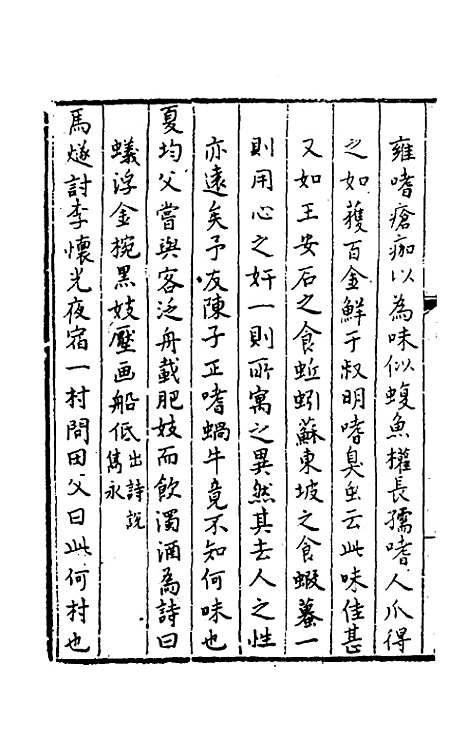 雍嗜瘡痂以為味似蝮魚權長孺嗜人爪得
之如獲百金鮮于叔明嗜臭虫云此味佳甚
又如王安石之食蚯蚓蘇東坡之食蝦蟇一
則用心之奸一則所寓之異然其去人之性
亦遠矣予友陳子正嗜蝸牛竟不知何味也
夏均父嘗與客泛舟載肥妓而飲濁酒為詩曰
蟻浮金椀黑妓壓画船低出詩説
雋永
馬燧討李懷光夜宿一村問田父曰此何村也